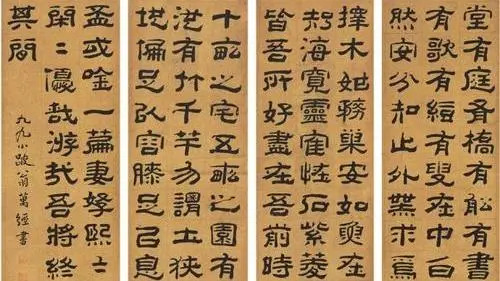 堂有庭有橋有舩有書
有歌有絃有叟在中白
然安分知止外無求焉
擇木姑務巢安如在
海寬靈隺怪石紫菱
皆吾所好盡在吾前時
十畝之宅五畝之園有
池有竹千竿勿謂土狹
地偏足以容膝足以息
盃或唫一篇妻孥熙〻
閑〻優哉游哉吾將終
其間
九九小跛翁萬經書